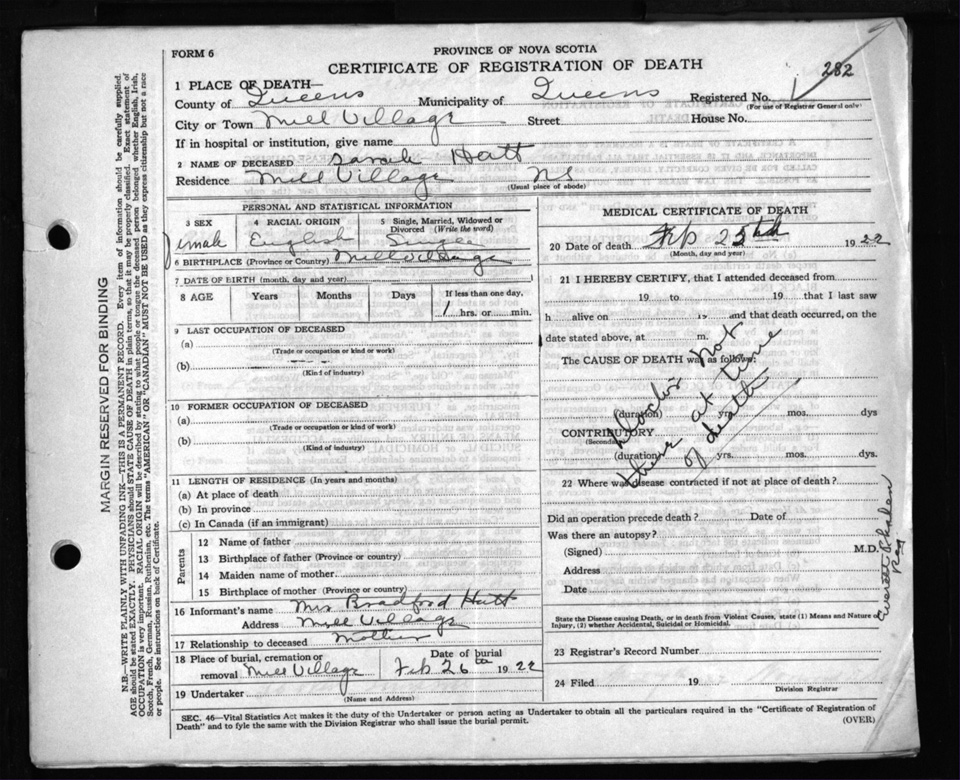 FORM 6
PROVINCE OF NOVA SCOTIA
CERTIFICATE OF REGISTRATION OF DEATH
282
1 PLACE OF DEATH—
County of Queens Municipality of Queens Registered No.
(For use of Registrar General only)
City or Town Mill Village Street House No.
If in hospital or institution, give name
2 NAME OF DECEASED Sarah Hatt
Residence Mill Village NS
(Usual place of abode)
PERSONAL AND STATISTICAL INFORMATION
3 SEX 4 RACIAL ORIGIN 5 Single, Married, Widowed or Divorced (Write the word)
female English Single
6 BIRTHPLACE (Province or Country) Mill Village
7 DATE OF BIRTH (month, day and year)
8 AGE Years Months Days If less than one day,
1 hrs. or min.
9 LAST OCCUPATION OF DECEASED
(a)
(Trade or occupation or kind or work)
(b)
(Kind of industry)
10 FORMER OCCUPATION OF DECEASED
(a)
(Trade or occupation or kind of work)
(b)
(Kind of industry)
11 LENGTH OF RESIDENCE (In years and months)
(a) At place of death
(b) In province
(c) In Canada (if an immigrant)
Parents
12 Name of father
13 Birthplace of father (Province or country)
14 Maiden name of mother
15 Birthplace of mother (Province or country)
16 Informant's name Mrs Bradford Hatt
Address Mill Village
17 Relationship to deceased Mother
18 Place of burial, cremation or removal Mill Village Date of burial Feb 26th 1922
19 Undertaker
(Name and Address)
MEDICAL CERTIFICATE OF DEATH
20 Date of death Feb 25th 1922
(Month, day and year)
21 I HEREBY CERTIFY, that I attended deceased from
19 to 19 that I last saw
h alive on 19 and that death occurred, on the
date stated above, at m.
The CAUSE OF DEATH was as follows:
Doctor not
there at time
of death
(duration) yrs. mos. dys
CONTRIBUTORY
(Secondary)
(duration) yrs. mos. dys.
22 Where was disease contracted if not at place of death?
Did an operation precede death? Date of
Was there an autopsy?
(Signed) M.D.
Address
Date
Reg
State the Disease causing Death, or in death from Violent Causes, state (1) Means and Nature of
Injury, (2) whether Accidental, Suicidal or Homicidal.
23 Registrar's Record Number
24 Filed 19
Division Registrar
SEC. 46—Vital Statistics Act makes it the duty of the Undertaker or person acting as Undertaker to obtain all the particulars required in the "Certificate of Registration of
Death" and to fyle the same with the Division Registrar who shall issue the burial permit.
(OVER)
MARGIN RESERVED FOR BINDING
N.B.—WRITE PLAINLY WITH UNFADING INK—THIS IS A PERMANENT RECORD. Every item of information should be carefully supplied.
AGE should be stated EXACTLY. PHYSICIANS should STATE CAUSE OF DEATH in plain terms, so that it may be properly classified. Exact statement of
OCCUPATION is very important. RACIAL ORIGIN will be described by stating to what people or tongue the deceased person belonged whether English, Irish,
Scotch, French, German, Russian, Ruthenian, etc. The terms "AMERICAN" OR "CANADIAN" MUST NOT BE USED as they express citizenship but not a race
or people. See instructions on back of Certificate.